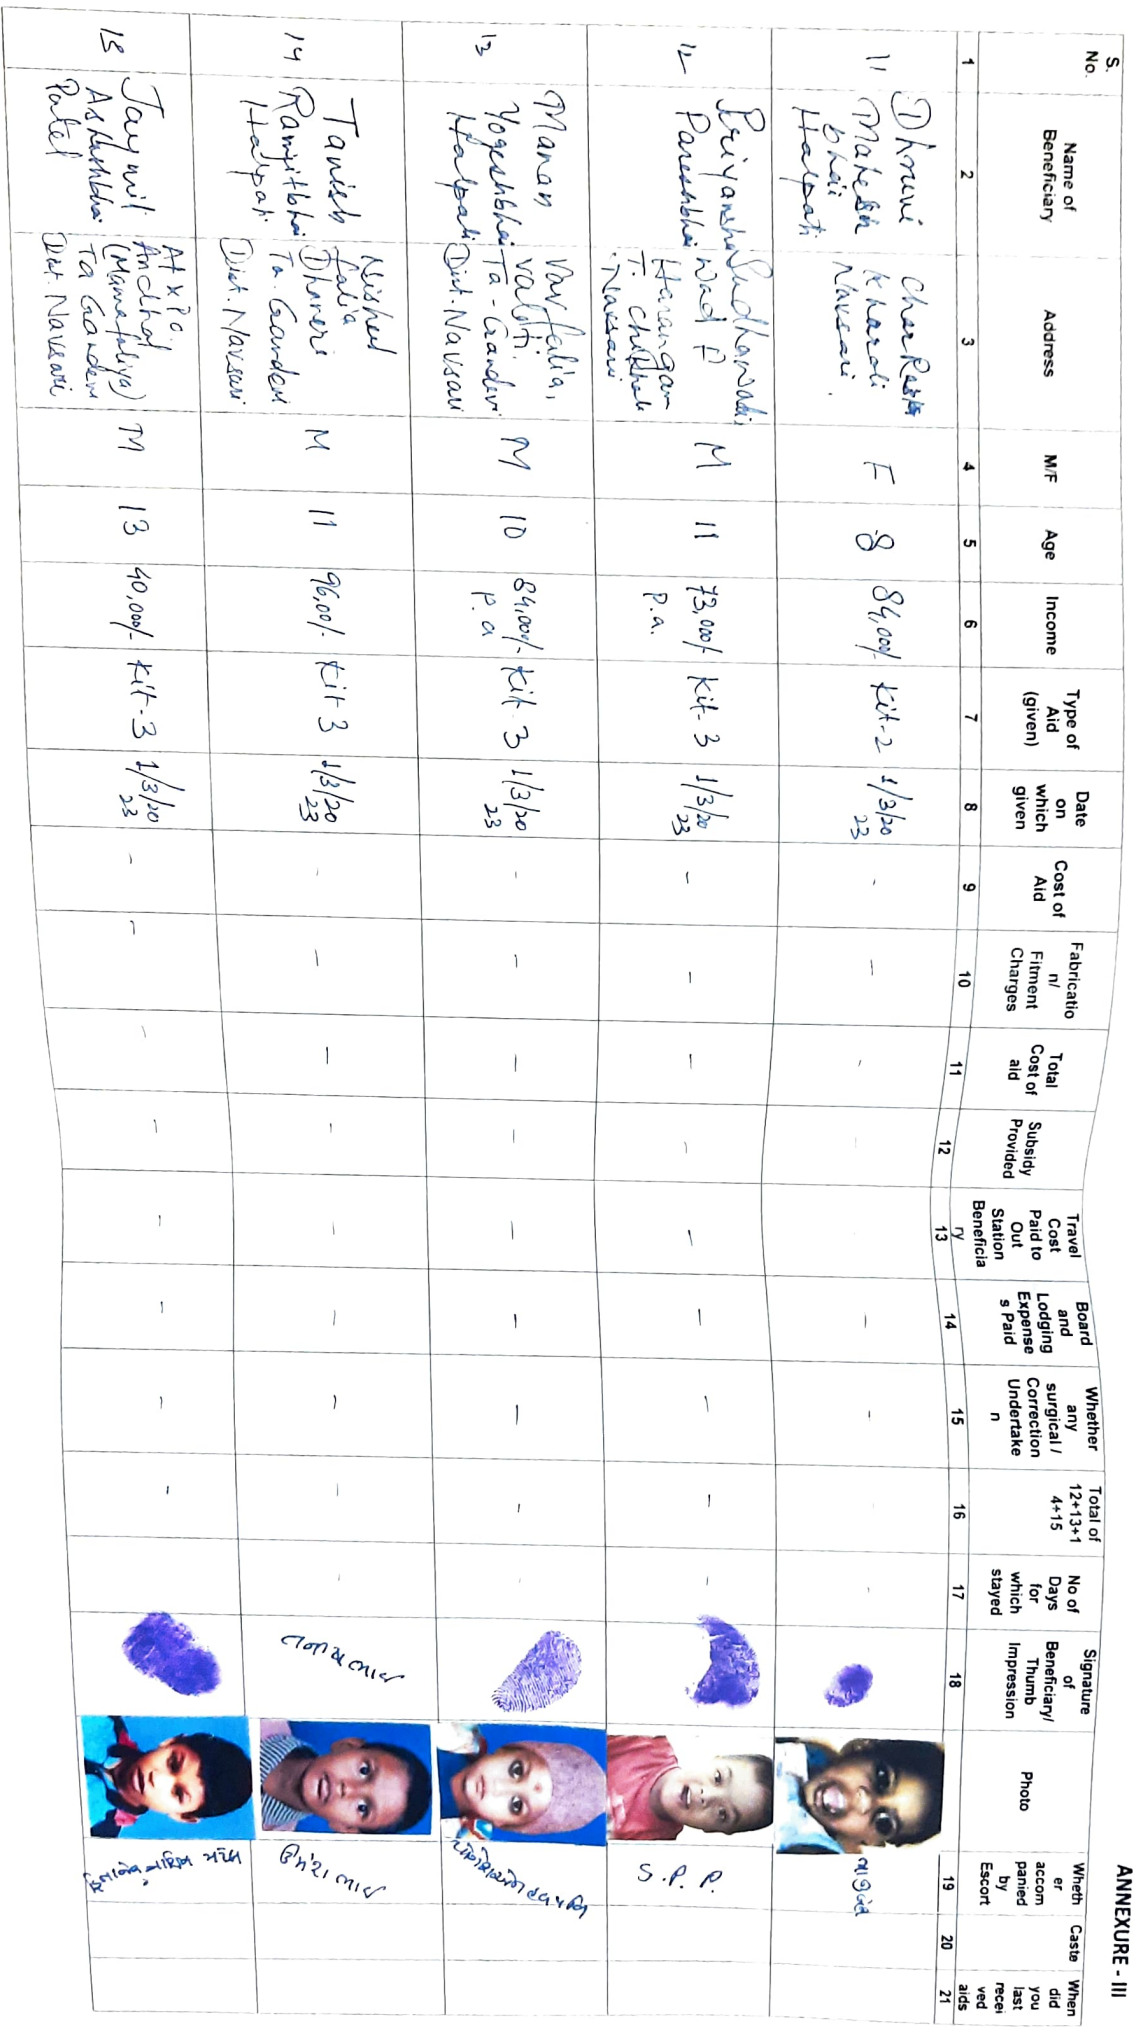 ANNEXURE - III
S.
No.
Name of
Beneficiary
Address
M/F
Age
Income
Type of
Aid
(given)
Date
on
which
given
Cost of
Aid
Fabricatio
n/
Fitment
Charges
Total
Cost of
aid
Subsidy
Provided
Travel
Cost
Paid to
Out
Station
Beneficia
ry
Board
and
Lodging
Expense
s Paid
Whether
any
surgical /
Correction
Undertake
n
Total of
12+13+1
4+15
No of
Days
for
which
stayed
Signature
of
Beneficiary/
Thumb
Impression
Photo
Wheth
er
accom
panied
by
Escort
Caste
When
did
you
last
recei
ved
aids
1 2 3 4 5 6 7 8 9 10 11 12 13 14 15 16 17 18 19 20 21
11
Dhruvi
Mahesh
bhai
Halpati
Char Rasta
Kharoli
Navsari.
F
8
84,000/-
Kit-2
1/3/20
23
- - - - - -
12
Priyanshu
Pareshbhai
Wad
Harangam
T. Chikhli
Navsari
M
11
73,000/-
P.a.
Kit-3
1/3/20
23
- - - - - - - - -
S.P.P.
13
Manan
Yogeshbhai
Halpati
Vav falia,
Valoti.
Ta-Gandevi
Dist. Navsari
M
10
84,000/-
P.a
Kit-3
1/3/20
23
- - - - - - - - -
14
Tanish
Ramjitbhai
Halpati
falia
Dhaneri
Ta. Gandevi
Dist. Navsari
M
11
96,00/-
Kit 3
1/3/20
23
- - - - - - - - -
15
Jaymil
Patel
At x Po.
Andhal
(Mama faliya)
Ta Gandevi
Dist. Navsari
M
13
40,000/-
Kit-3
1/3/20
23
- - - - - - - -